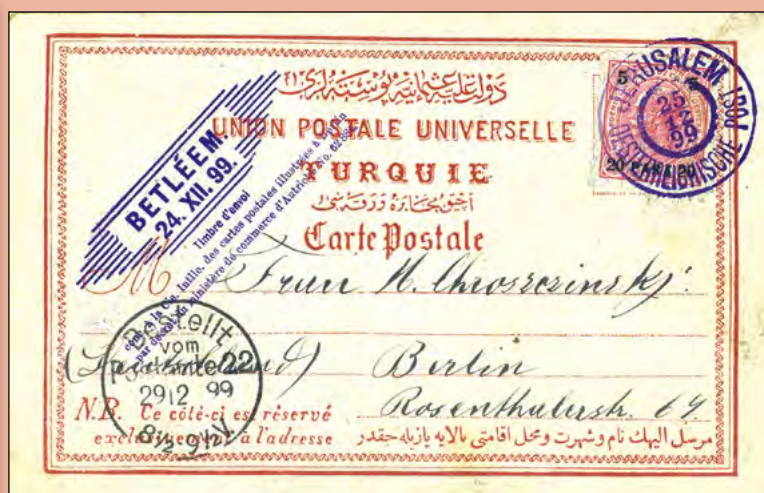 دولت علیه عثمانیه پوسته لری
UNION POSTALE UNIVERSELLE
TURQUIE
Carte Postale
BETLÉEM.
24. XII. 99.
Timbre d'envoi
cédé à la Cie. des cartes postales illustrées à
par décret du ministère de commerce d'Autriche No.
5 5
20 PARA 20
JERUSALEM
25
12
99
OESTERREICHISCHE POST
M Frau H. Chroszczinski
Berlin
Rosenthalerstr. 69
Bestellt
vom
Postamte 22
2912 99
8½-9½V.
N.B. Ce côté-ci est réservé
exclusivement à l'adresse
مرسل اليهك نام وشهرت ومحل اقامتى بالايه يازيله جقدر